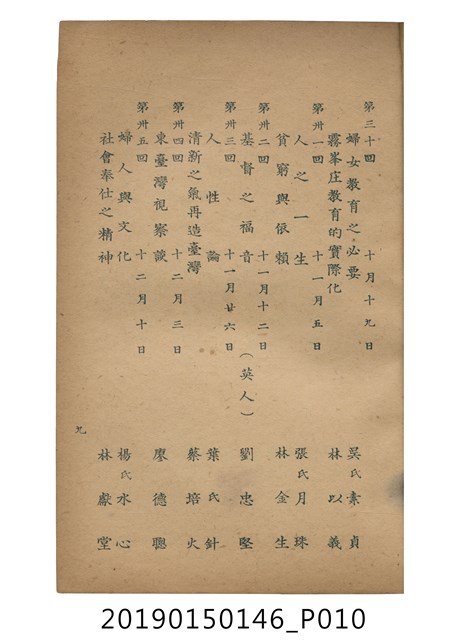 第三十回　十月十九日
婦女教育之必要　吳氏素貞
霧峯庄教育的實際化　林以義
第卅一回　十一月五日
人之一生　張氏月珠
貧窮與依賴　林金生
第卅二回　十一月十二日
基督之福音　（英人）劉忠堅
第卅三回　十一月廿六日
人性論　葉氏針
清新之氣再造臺灣　蔡培火
第卅四回　十二月三日
東臺灣視察談　廖德聰
第卅五回　十二月十日
婦人與文化　楊氏水心
社會奉仕之精神　林獻堂
九
20190150146_P010